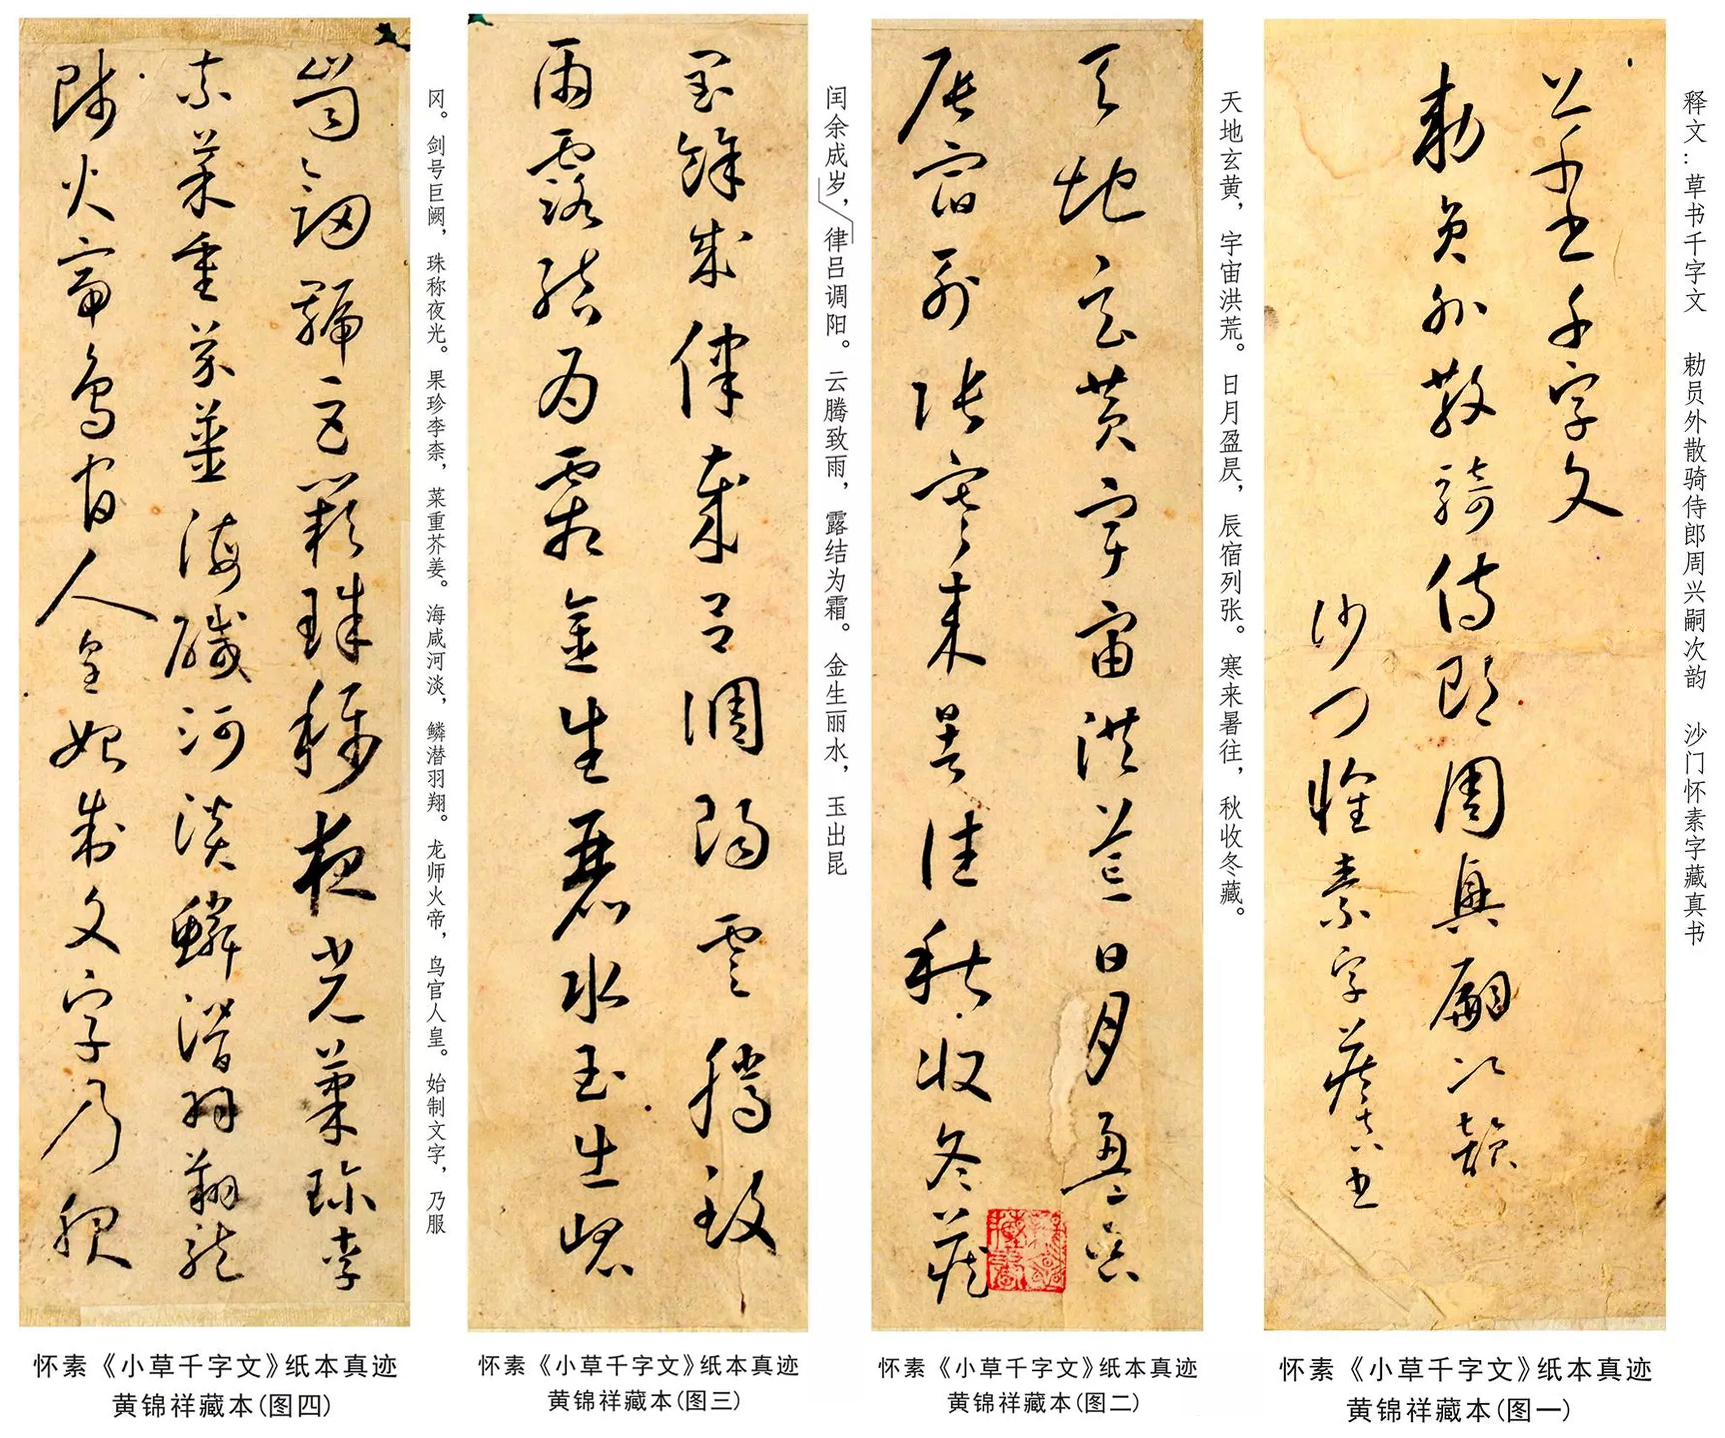 释文:草书千字文 勅员外散骑侍郎周兴嗣次韵 沙门怀素字藏真书
草書千字文
勅員外散騎侍郎周興嗣次韻
沙門懷素字藏真書
怀素《小草千字文》纸本真迹
黄锦祥藏本(图一)
天地玄黄，宇宙洪荒。日月盈昃，辰宿列张。寒来暑往，秋收冬藏。
天地玄黃宇宙洪荒日月盈昃
辰宿列張寒來暑往秋收冬藏
怀素《小草千字文》纸本真迹
黄锦祥藏本(图二)
闰余成岁，律吕调阳。云腾致雨，露结为霜。金生丽水，玉出昆
閏餘成律歲呂調陽雲騰致
雨露結為霜金生麗水玉出崐
怀素《小草千字文》纸本真迹
黄锦祥藏本(图三)
冈。剑号巨阙，珠称夜光。果珍李柰，菜重芥姜。海咸河淡，鳞潜羽翔。龙师火帝，鸟官人皇。始制文字，乃服
崗劍號巨闕珠稱夜光菓珍李
柰菜重芥薑海鹹河淡鱗潛羽翔龍
師火帝鳥官人皇始制文字乃服
怀素《小草千字文》纸本真迹
黄锦祥藏本(图四)